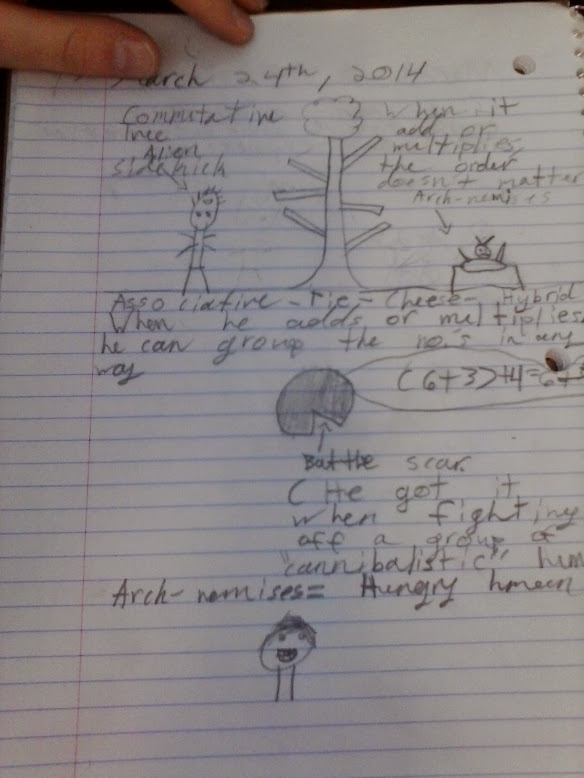 March 24th, 2014
Commutative
Tree
Alien
sidekick
When it
add or
multiplies
the order
doesn't matter
Arch-nemises
Associative - Pie - Cheese - Hybrid
When he adds or multiplies,
he can group the no.'s in any
way
(6+3)+4=6+3
Battle scar.
(He got it
when fighting
off a group of
"cannibalistic" hum
Arch-nemises= Hungry hmeen